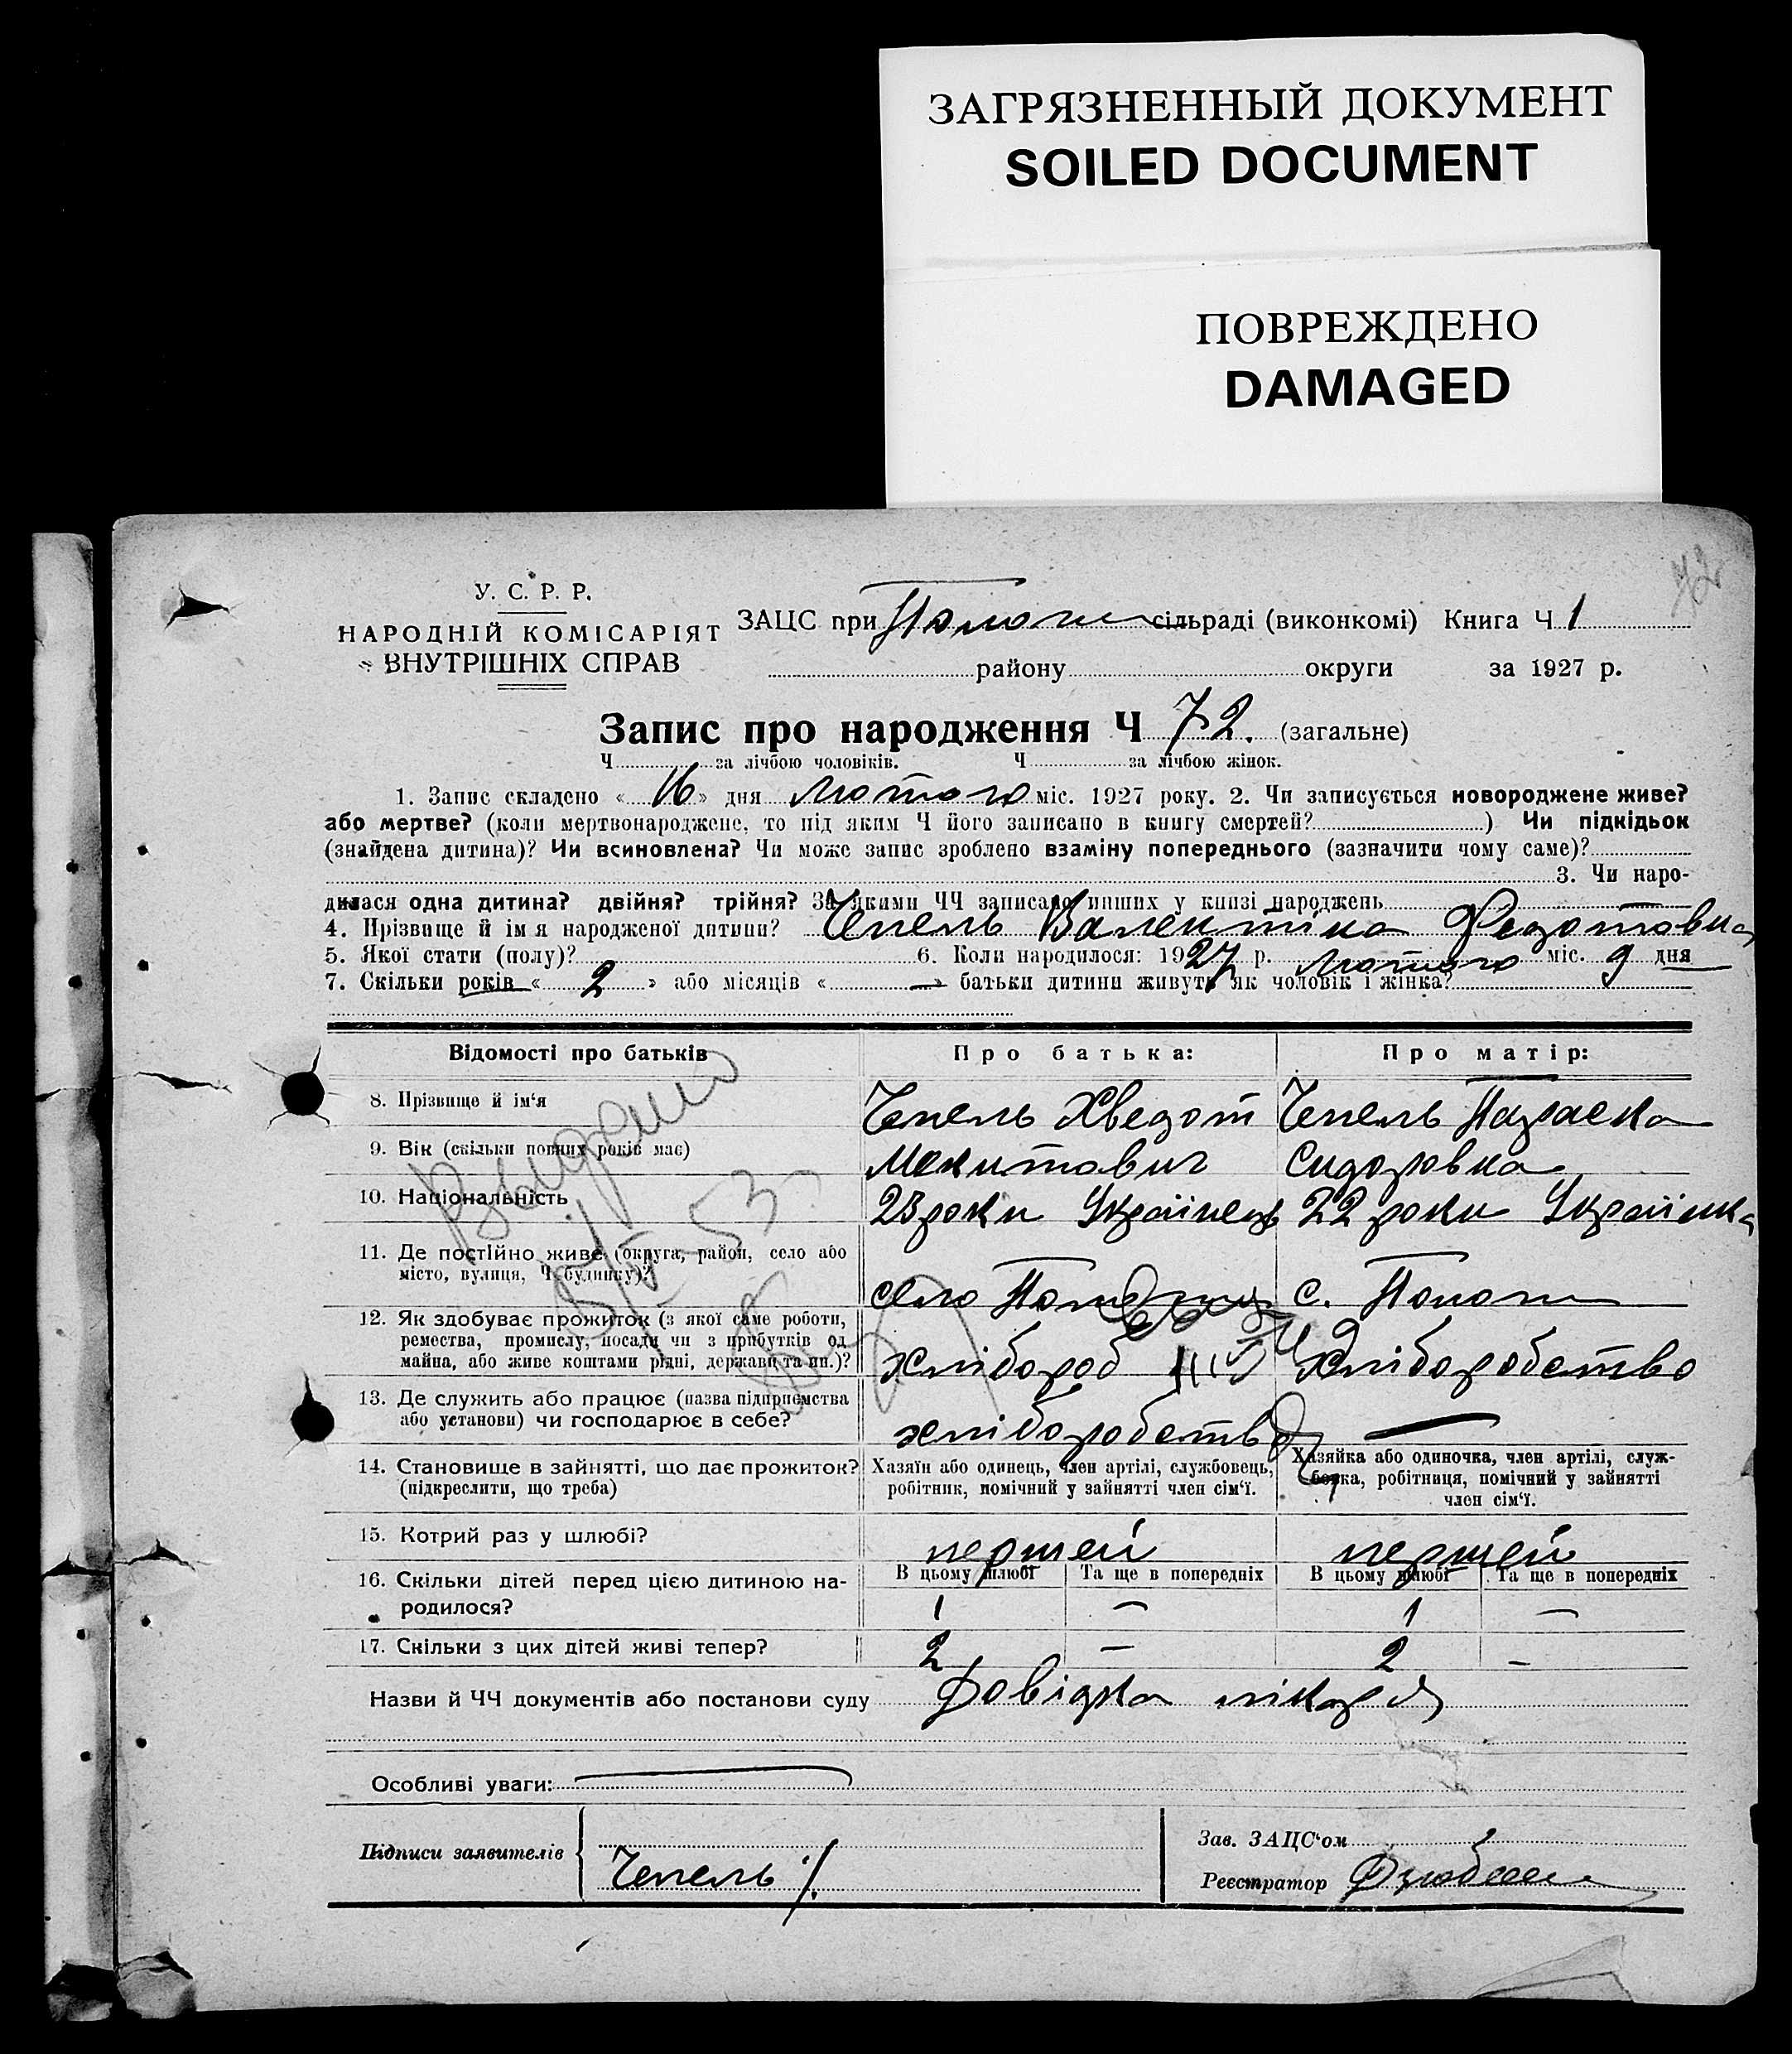 ЗАГРЯЗНЕННЫЙ ДОКУМЕНТ
SOILED DOCUMENT
ПОВРЕЖДЕНО
DAMAGED
72
У. С. Р. Р.
НАРОДНІЙ КОМІСАРІЯТ
ВНУТРІШНІХ СПРАВ
ЗАЦС при Пологи сільраді (виконкомі) Книга Ч 1
району округи за 1927 р.
Запис про народження Ч 72. (загальне)
Ч за лічбою чоловіків. Ч за лічбою жінок.
1. Запис складено « 16 » дня Лютого міс. 1927 року. 2. Чи записується новороджене живе?
або мертве? (коли мертвонароджене, то під яким Ч його записано в книгу смертей? ) Чи підкідьок
(знайдена дитина)? Чи всиновлена? Чи може запис зроблено взаміну попереднього (зазначити чому саме)?
3. Чи наро-
дилася одна дитина? двійня? трійня? За якими ЧЧ записано инших у книзі народжень
4. Прізвище й ім'я народженої дитини? Чепель Валентіна Федотовна
5. Якої стати (полу)? 6. Коли народилося: 1927 р. Лютого міс. 9 дня
7. Скільки років « 2 » або місяців « — » батьки дитини живуть як чоловік і жінка?
Відомості про батьків Про батька: Про матір:
8. Прізвище й ім'я Чепель Хведот Чепель Параска
9. Вік (скільки повних років має) Микитович Сидоровна
10. Національність 23 роки Українець 22 роки Українка
11. Де постійно живе (округа, район, село або
місто, вулиця, Ч будинку)? село Пологи с. Пологи
12. Як здобуває прожиток (з якої саме роботи,
ремества, промислу, посади чи з прибутків од
майна, або живе коштами рідні, держави та ин.)? хлібороб хліборобство
13. Де служить або працює (назва підприємства
або установи) чи господарює в себе? хліборобство —
14. Становище в зайнятті, що дає прожиток?
(підкреслити, що треба)
Хазяїн або одинець, член артілі, службовець,
робітник, помічний у зайнятті член сім'ї.
Хазяйка або одиночка, член артілі, служ-
бовка, робітниця, помічний у зайнятті
член сім'ї.
15. Котрий раз у шлюбі? першей першей
16. Скільки дітей перед цією дитиною на-
родилося?
В цьому шлюбі Та ще в попередніх В цьому шлюбі Та ще в попередніх
1 — 1 —
17. Скільки з цих дітей живі тепер? 2 — 2 —
Назви й ЧЧ документів або постанови суду Довідка лікаря
Особливі уваги:
Підписи заявителів Чепель
Зав. ЗАЦС'ом
Реєстратор